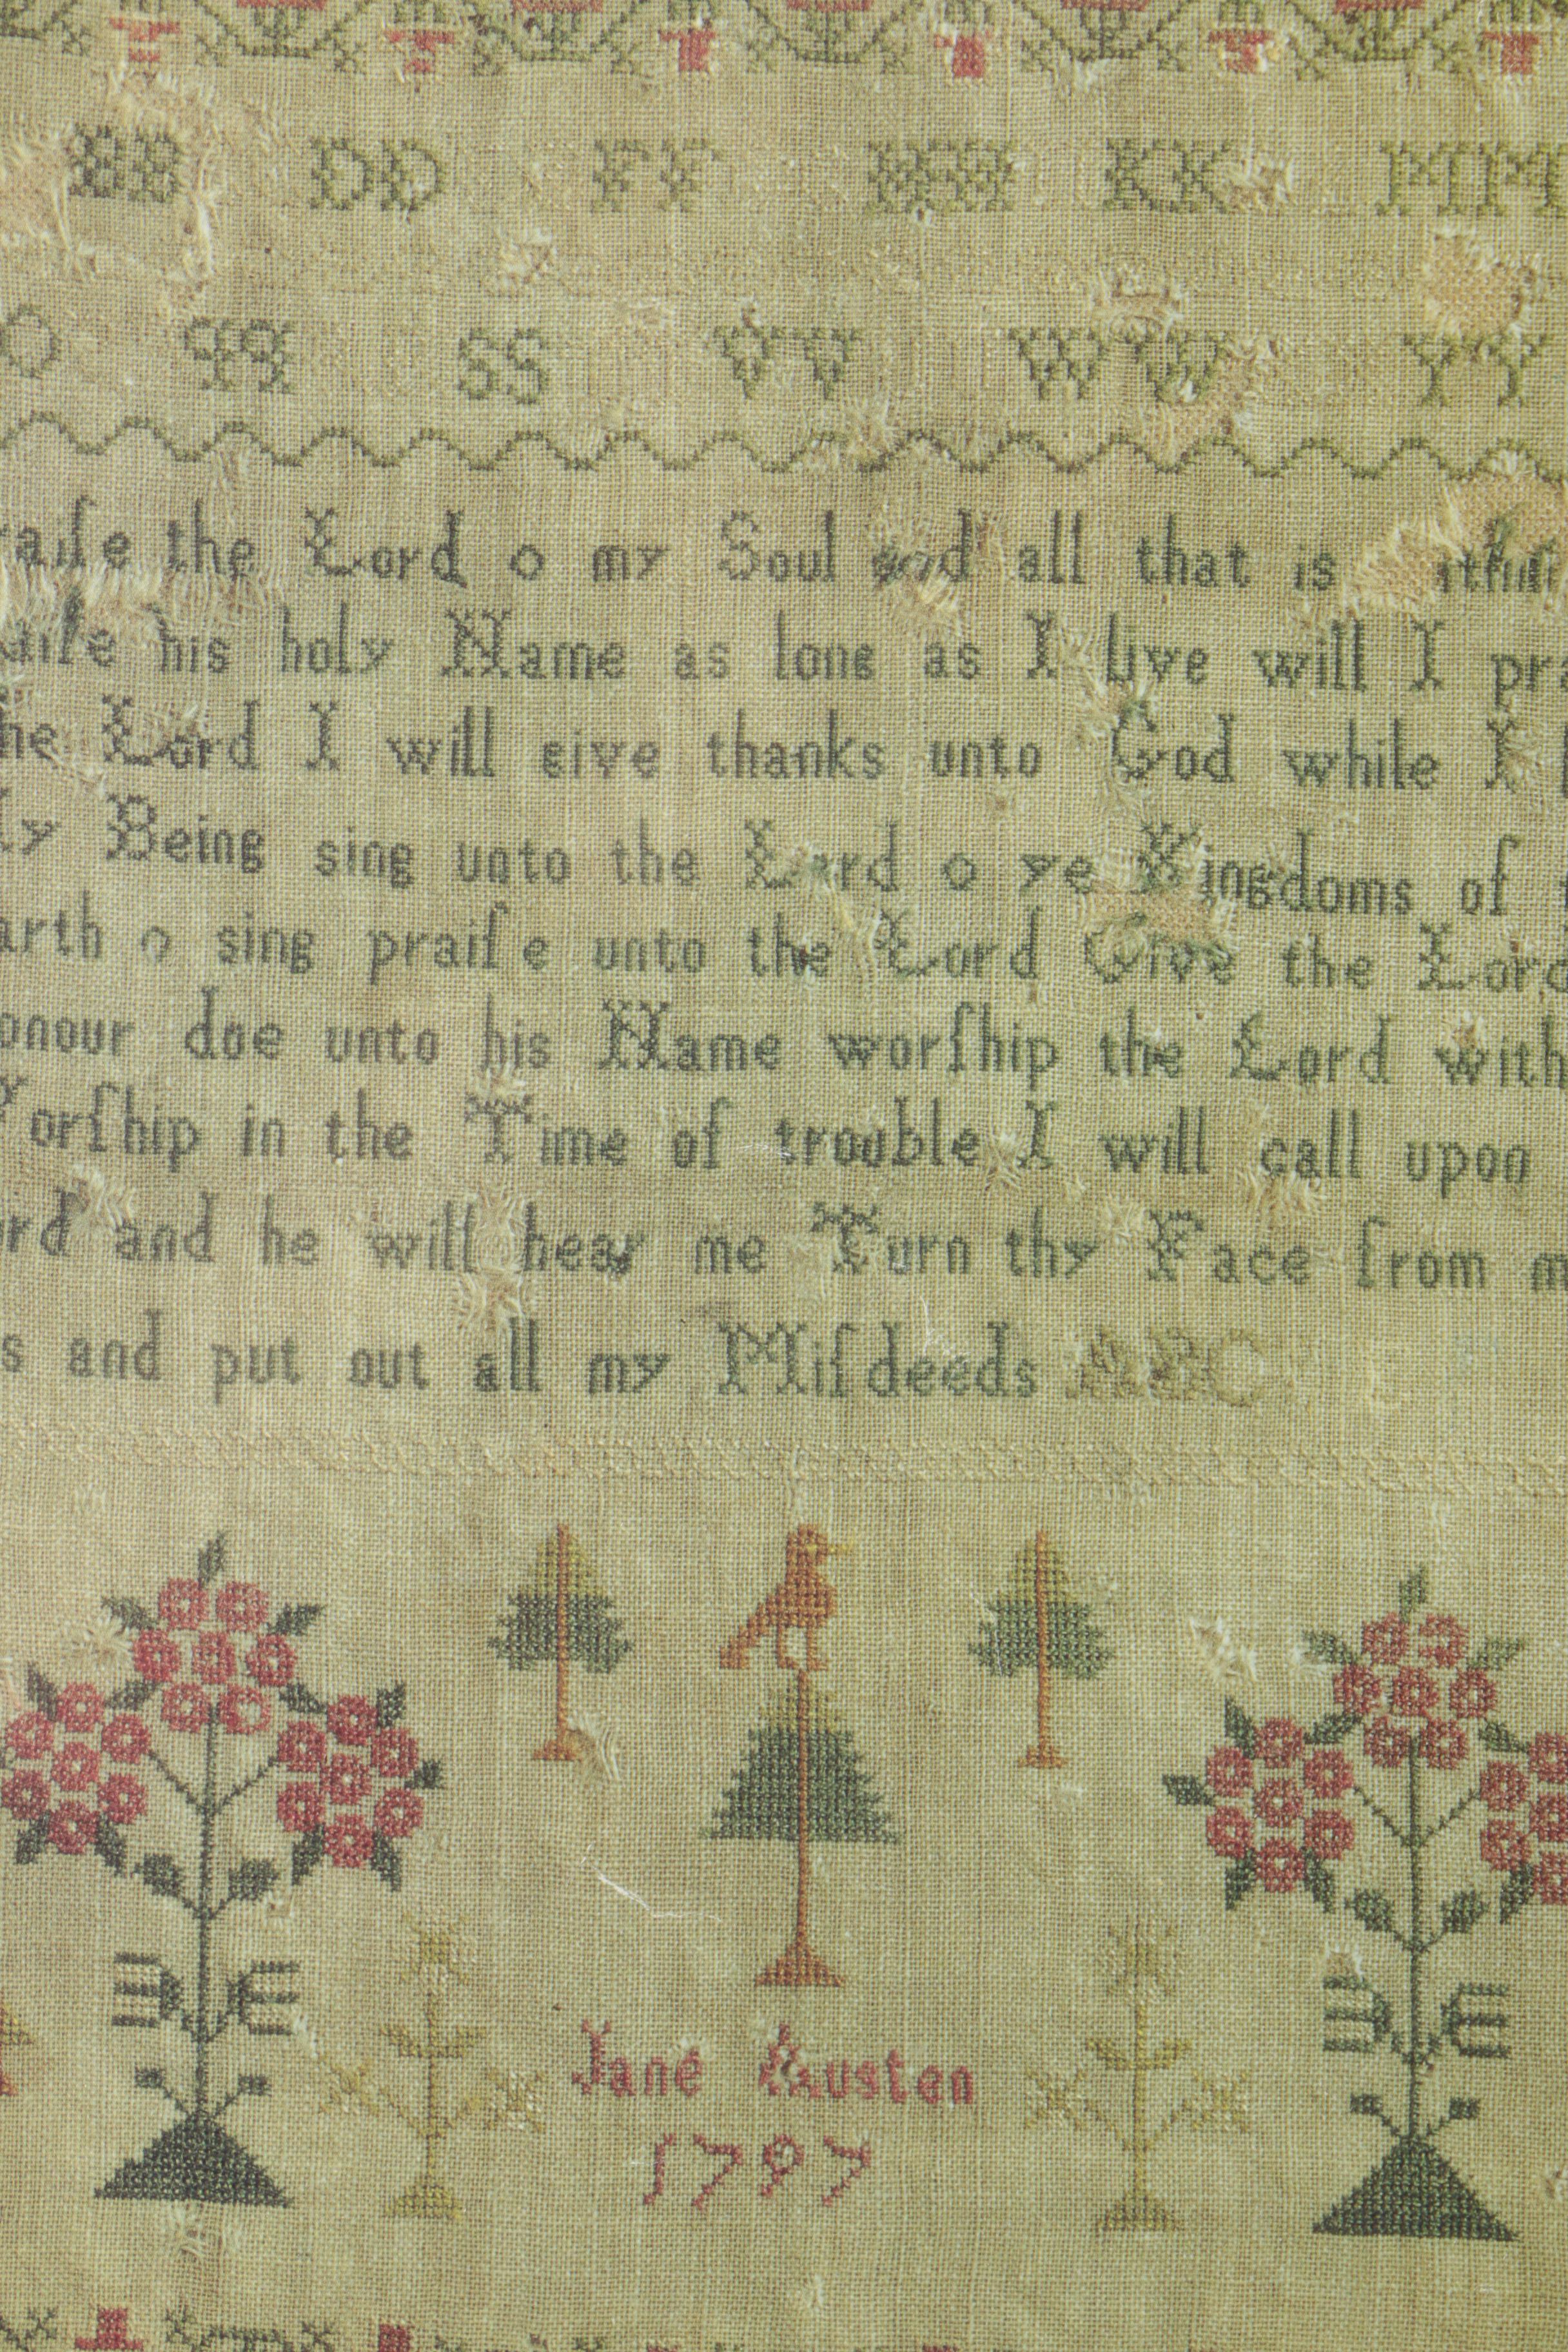 BB DD FF HH KK MM
O QQ SS VV WW YY
raiſe the Lord o my Soul and all that is
aiſe his holy Name as long as I live will I pra
he Lord I will give thanks unto God while I
y Being sing unto the Lord o ye Kingdoms of
arth o sing praiſe unto the Lord Give the Lord
onour due unto his Name worſhip the Lord with
orſhip in the Time of trouble I will call upon
ord and he will hear me Turn thy Face from m
s and put out all my Miſdeeds ABC
Jane Austen
1797